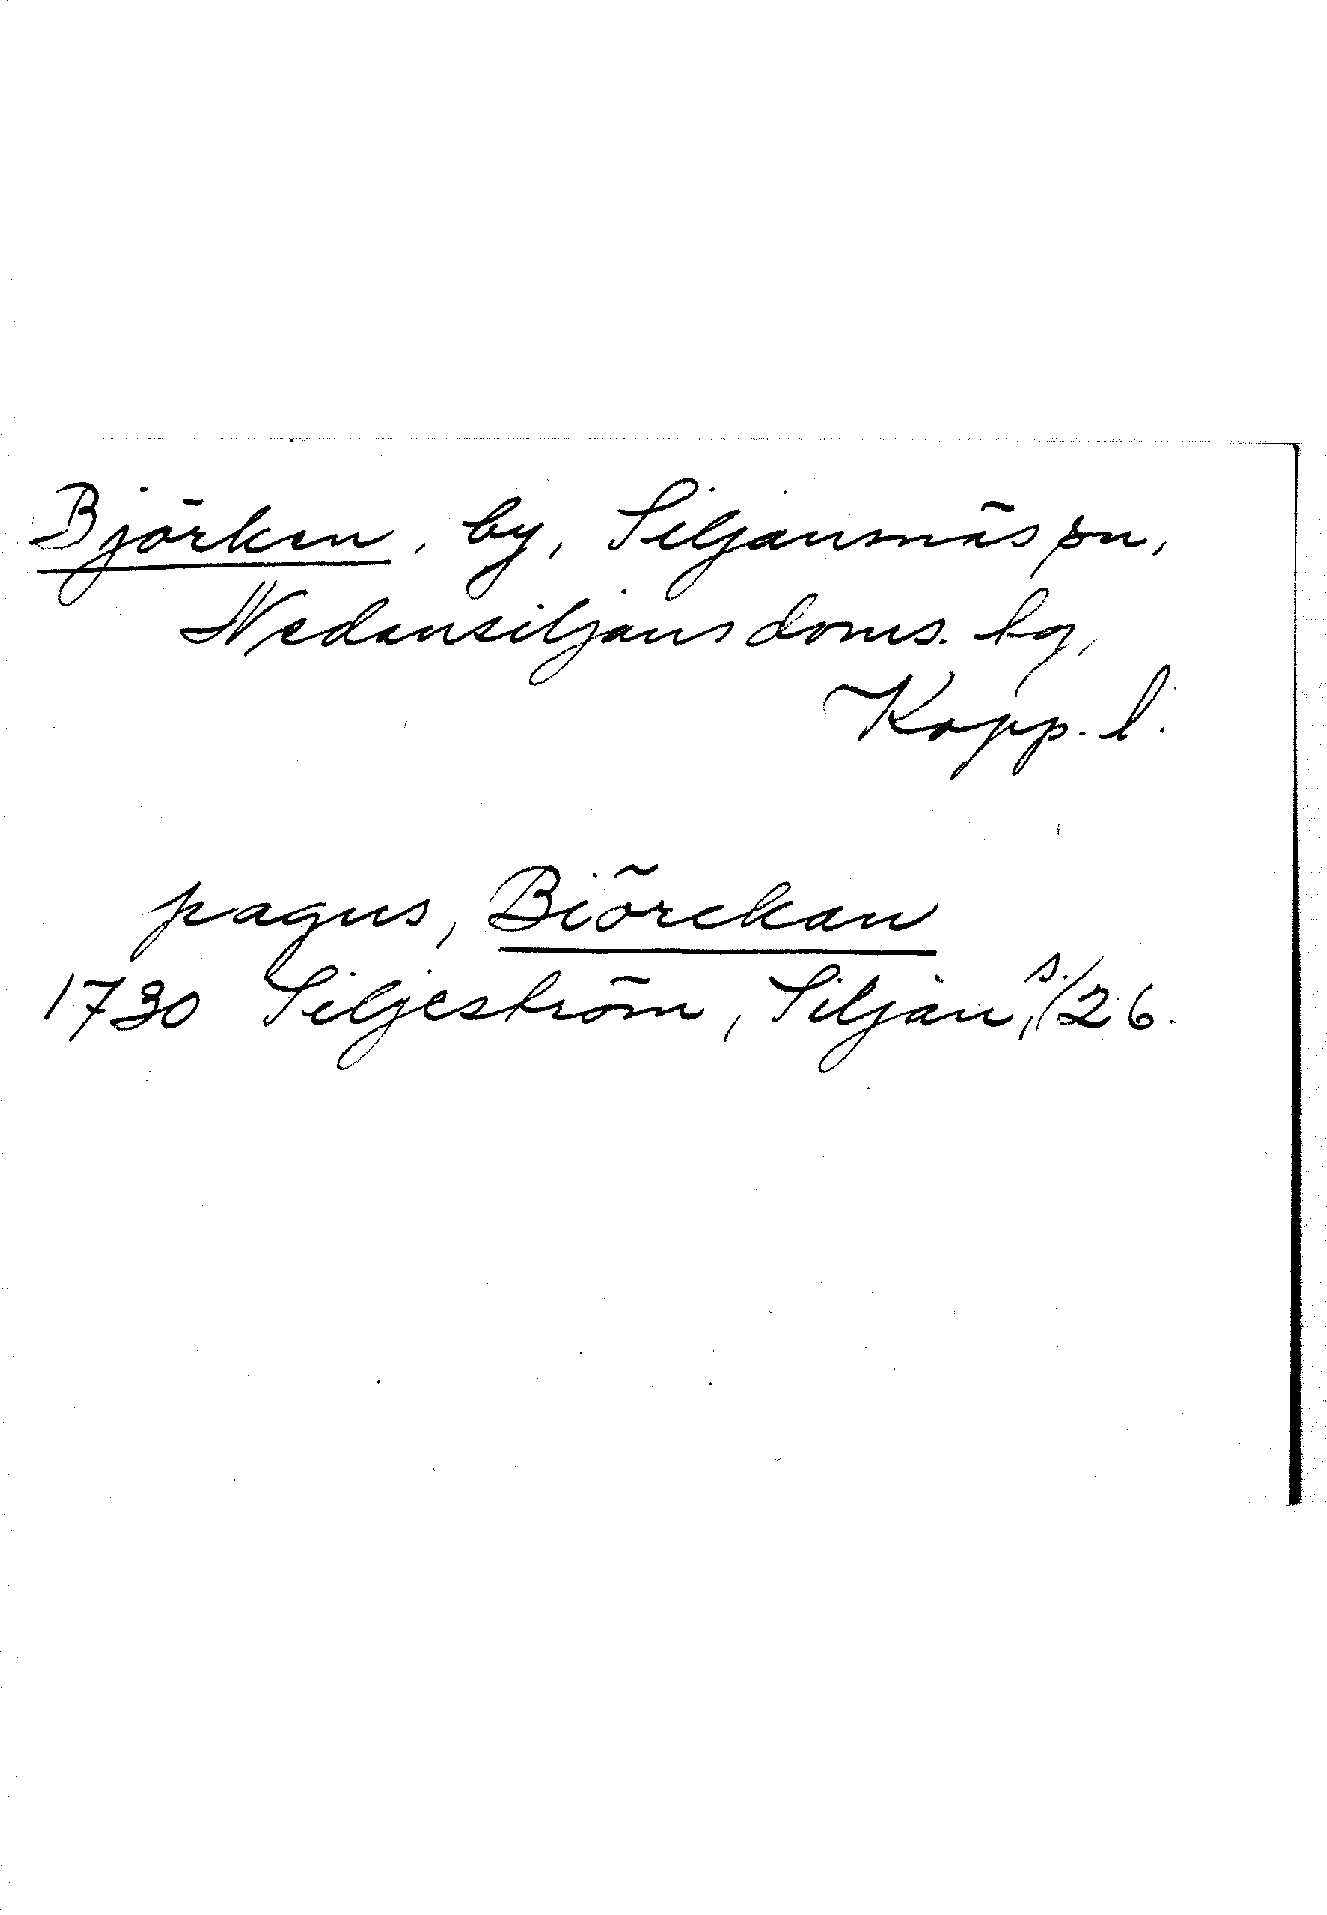 Björken, by, Siljansnäs sn,
Nedansiljans doms. hg,
Kopp. l.
pagus, Biörckan
1730 Siljeström, Siljan, s. 26.